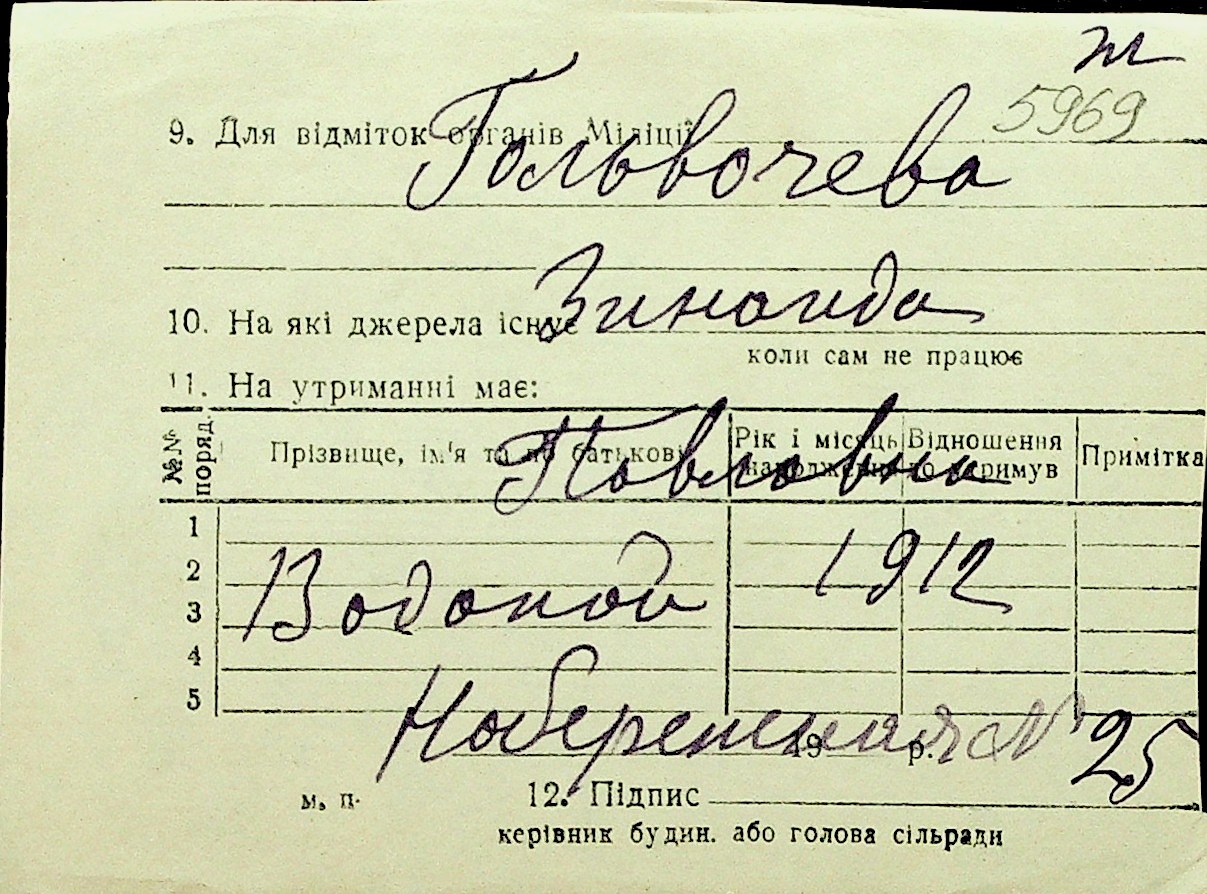 т
5969
9. Для відміток органів Міліції
Гольвочева
10. На які джерела існує
Зинаида
коли сам не працює
11. На утриманні має:
Павловна
№№ поряд. Прізвище, ім'я та по батькові Рік і місяць народження Відношення до отримув Примітка
1
2
3
4
5
1912
Водопой
Набережная № 25
19 р.
м. п.
12. Підпис
керівник будин. або голова сільради